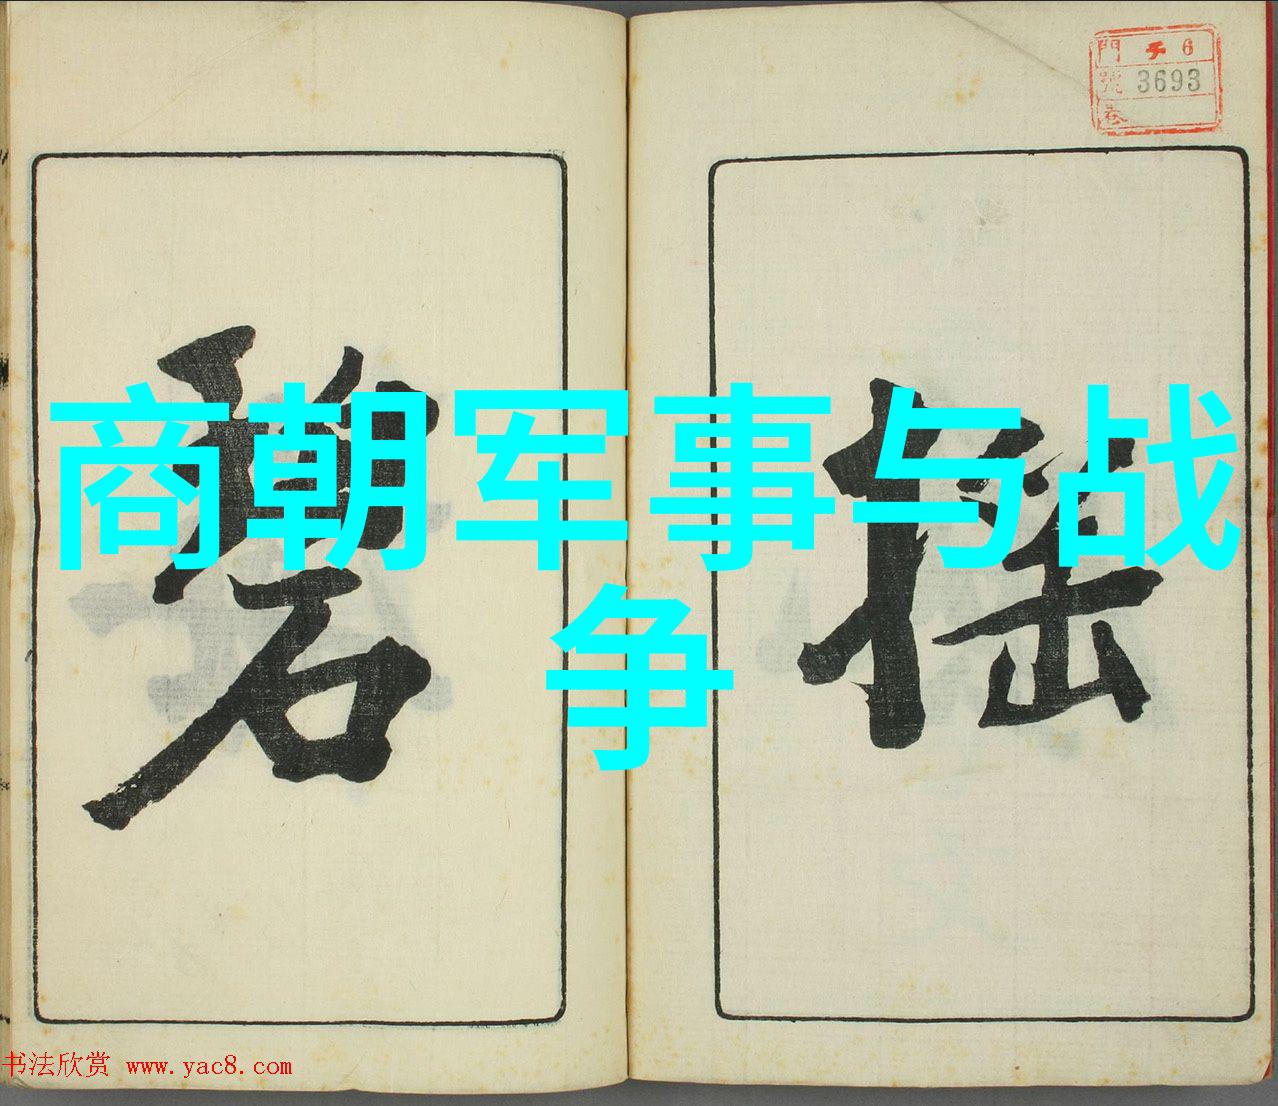 門 チ 6
號 3693
卷
搖
碧
商朝军事与战
争
书法欣赏 www.yac8.com